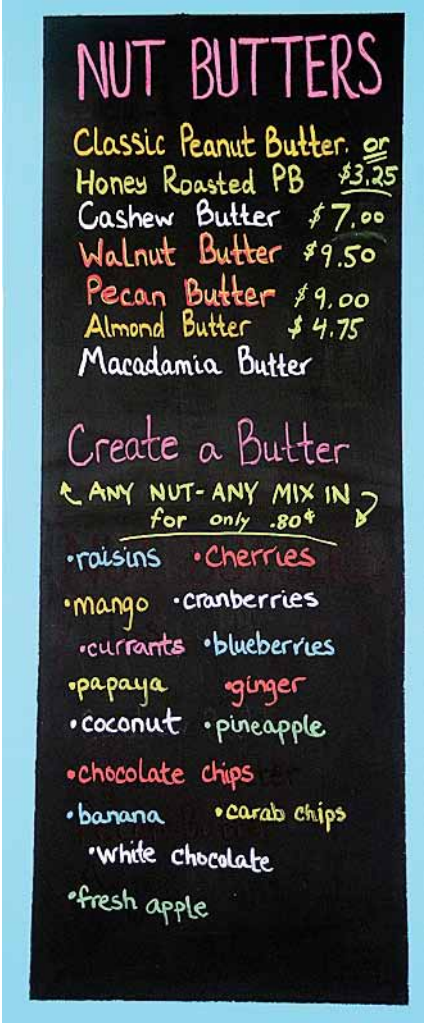 NUT BUTTERS
Classic Peanut Butter. or
Honey Roasted PB $3.25
Cashew Butter $7.00
Walnut Butter $9.50
Pecan Butter $9.00
Almond Butter $4.75
Macadamia Butter
Create a Butter
ANY NUT-ANY MIX IN
for only .80¢
•raisins •Cherries
•mango •cranberries
•currants •blueberries
•papaya •ginger
•coconut •pineapple
•chocolate chips
•banana •carab chips
•white chocolate
•fresh apple